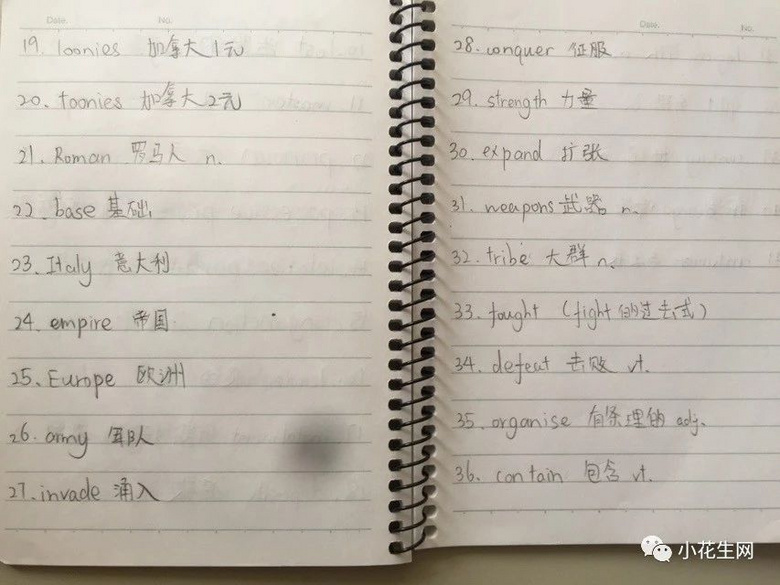 Date. No.
19. loonies 加拿大1元
20. toonies 加拿大2元
21. Roman 罗马人 n.
22. base 基础
23. Italy 意大利
24. empire 帝国
25. Europe 欧洲
26. army 军队
27. invade 涌入
Date. No.
28. conquer 征服
29. strength 力量
30. expand 扩张
31. weapons 武器 n.
32. tribe 大群 n.
33. fought (fight的过去式)
34. defeat 击败 vt.
35. organise 有条理的 adj.
36. contain 包含 vt.
小花生网